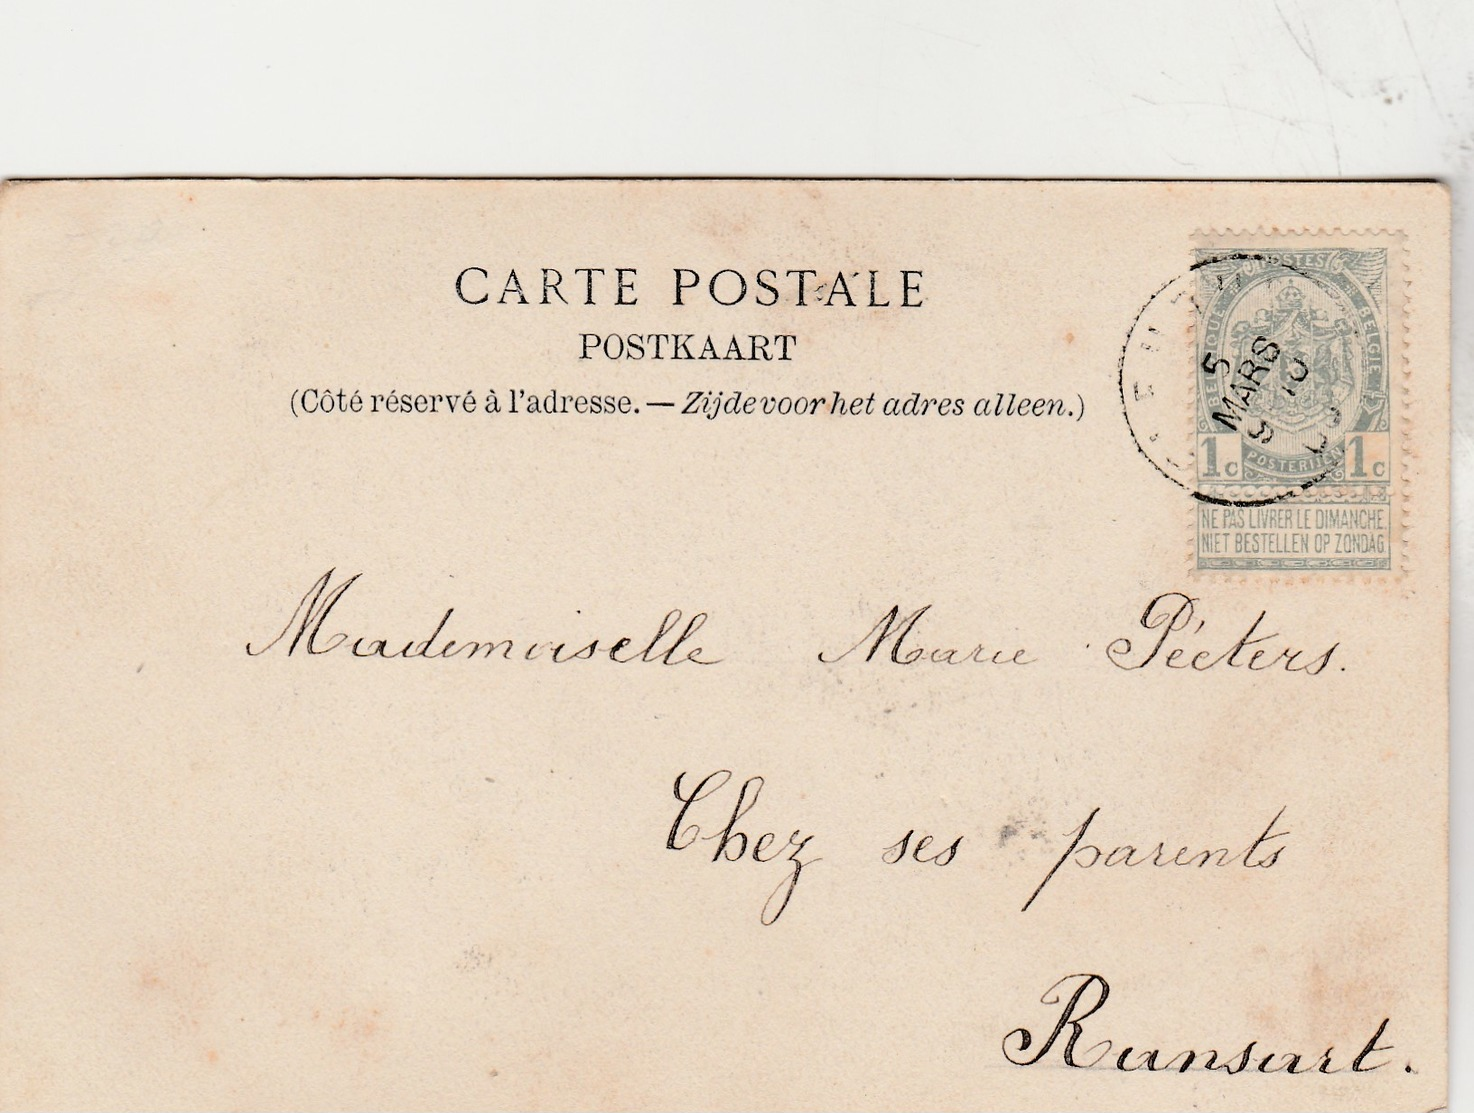 CARTE POSTALE
POSTKAART
(Côté réservé à l'adresse. — Zijde voor het adres alleen.)
POSTES
BELGIQUE BELGIE
5
MARS
8 10
1c POSTERIJEN 1c
NE PAS LIVRER LE DIMANCHE
NIET BESTELLEN OP ZONDAG
Mademoiselle Marie Péeters.
Chez ses parents
Ransart.